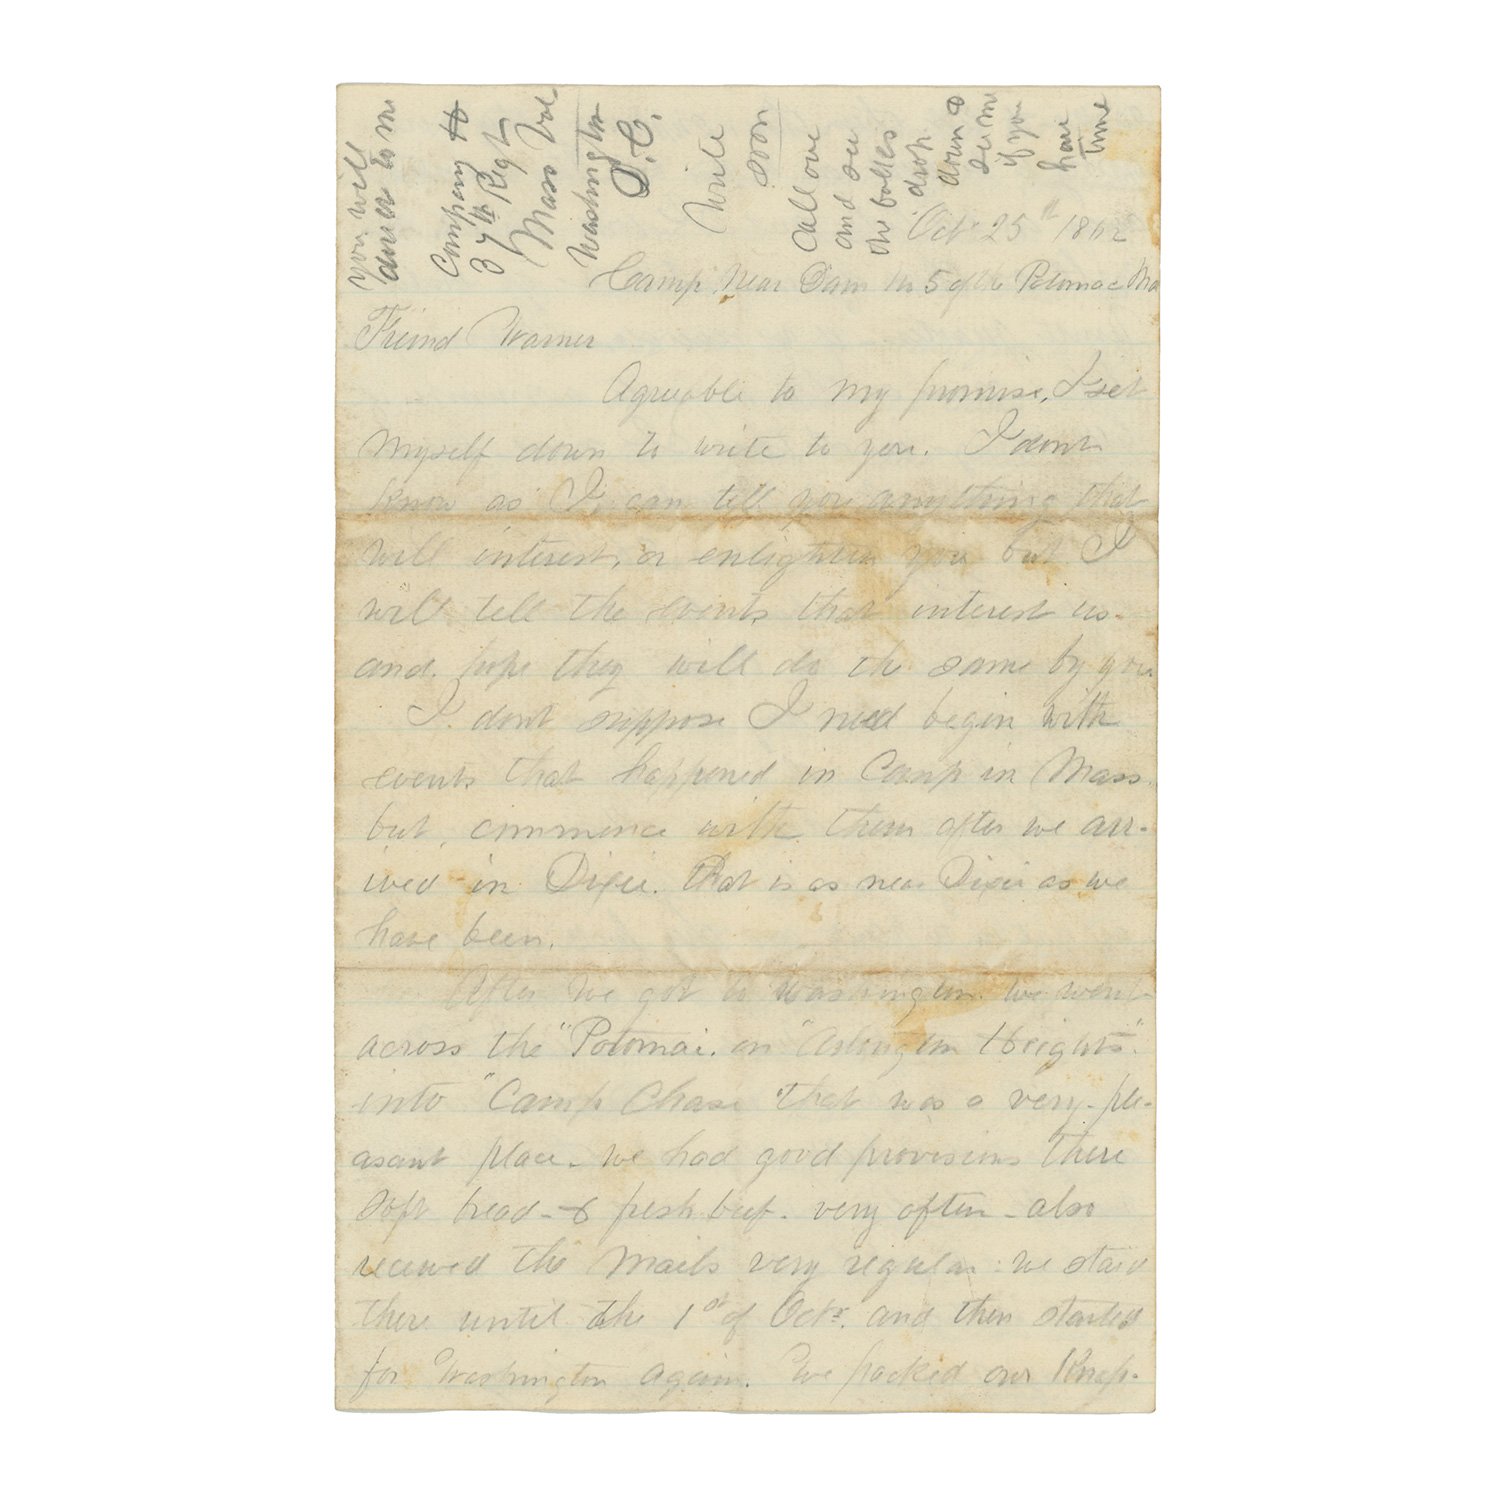 you will
direct to me
Company H
37th Regt
Mass Vol
Washington
D.C.
Write
soon
Call over
and see
the
drop
down &
see me
if you
have
time
Oct 25th 1862
Camp Near Dam No 5 of the Potomac Md
Freind Warner
Agreeable to my promise, I set
myself down to write to you. I dont
know as I can tell you anything that
will interest, or enlighten you but I
will tell the events that interest us.
and hope they will do the same by you
I dont suppose I need begin with
events that happened in Camp in Mass.
but, commence with them after we arr-
ived in Dixie. that is as near Dixie as we
have been.
After we got to Washington we went
across the "Potomac. on "Arlington Heights".
into "Camp Chase" that was a very-ple-
asant place. we had good provisions there
soft bread - & fresh beef. very often - also
received the Mails very regular. we staid
there until the 1st of Octr. and then started
for Washington again. We packed our Knap-